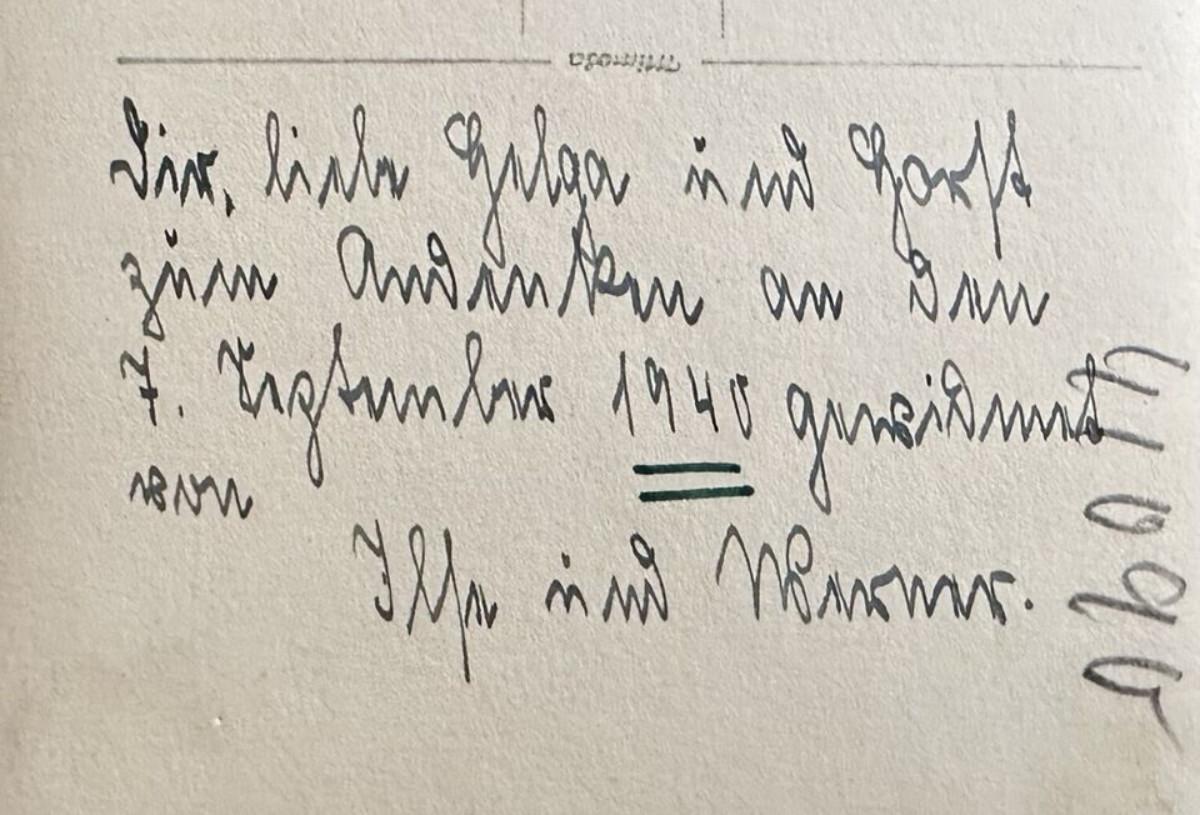 Mimosa
Dir, liebe Helga und Horst
zum Andenken an den
7. September 1940 gewidmet
von
Ilse und Werner.